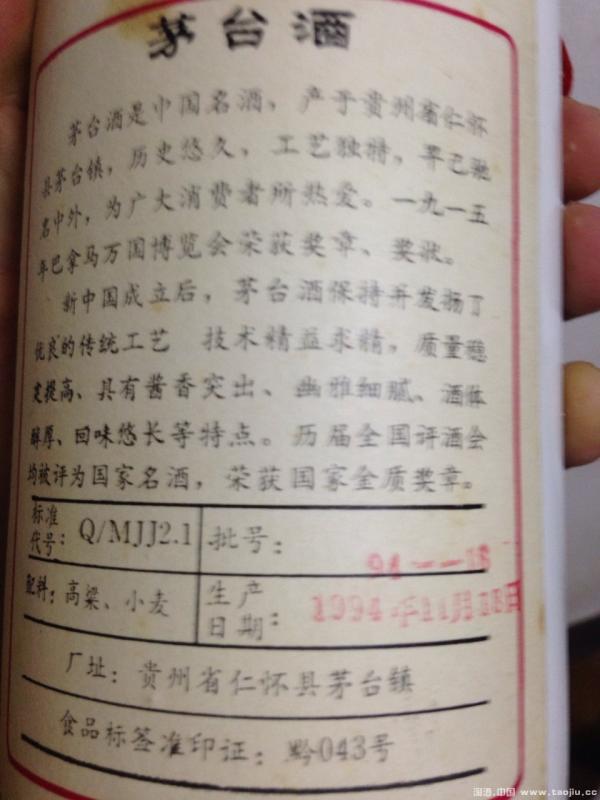 茅台酒
茅台酒是中国名酒，产于贵州省仁怀
县茅台镇，历史悠久，工艺独特，早已驰
名中外，为广大消费者所热爱。一九一五
年巴拿马万国博览会荣获奖章、奖状。
新中国成立后，茅台酒保持并发扬了
优良的传统工艺 技术精益求精，质量稳
定提高、具有酱香突出、幽雅细腻、酒体
醇厚、回味悠长等特点。历届全国评酒会
均被评为国家名酒，荣获国家金质奖章。
标准代号：Q/MJJ2.1 批号：
配料：高粱、小麦 生产日期：1994年11月18日
厂址：贵州省仁怀县茅台镇
食品标签准印证：黔043号
淘酒.中国 www.taojiu.cc